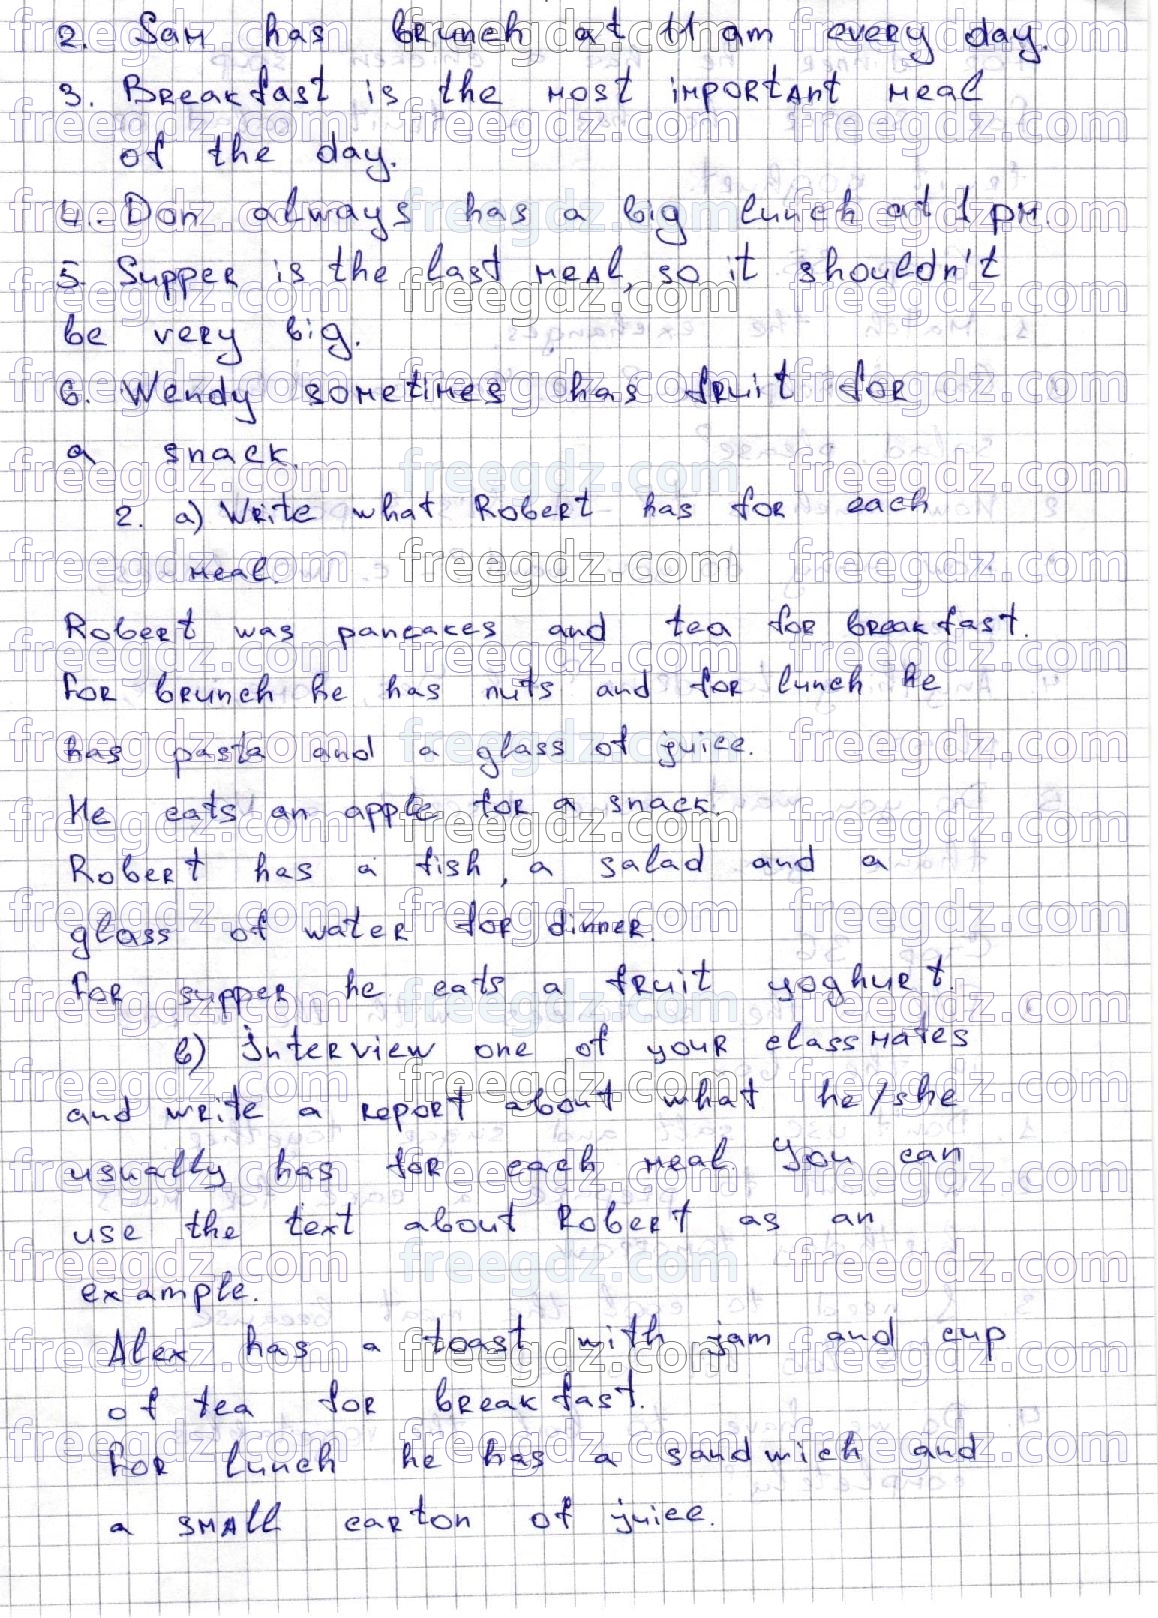 2. Sam has brunch at 11 am every day.
3. Breakfast is the most important meal
of the day.
4. Don always has a big lunch at 1 pm.
5. Supper is the last meal, so it shouldn't
be very big.
6. Wendy sometimes has fruit for
a snack.
2. a) Write what Robert has for each
meal.
Robert was pancakes and tea for breakfast.
For brunch he has nuts and for lunch he
has pasta and a glass of juice.
He eats an apple for a snack.
Robert has a fish, a salad and a
glass of water for dinner.
For supper he eats a fruit yoghurt.
b) Interview one of your classmates
and write a report about what he/she
usually has for each meal. You can
use the text about Robert as an
example.
Alex has a toast with jam and cup
of tea for breakfast.
For lunch he has a sandwich and
a small carton of juice.